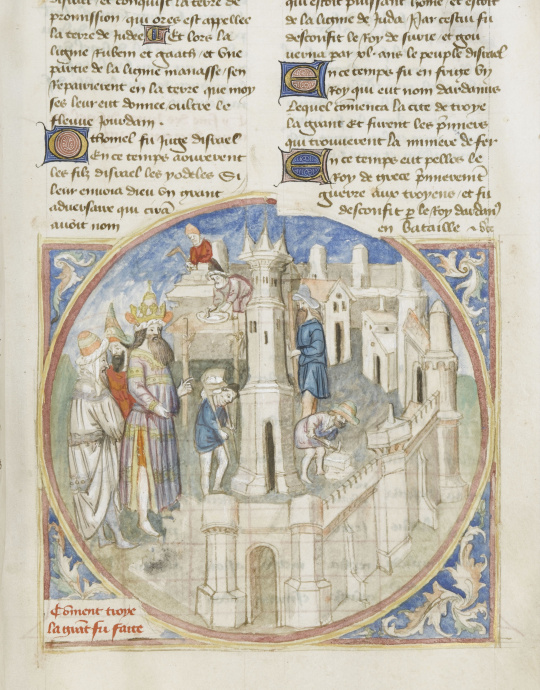 disrael et conquise la terre de
promission qui ores est appellee
la terre de Judee Et lors la
lignie Rubem et gaath et une
partie de la lignie manasse sen
Repairierent en la terre que moy
ses leur eut donnee oultre le
fleuve Jourdain.
Othomel fu Juge disrael
En ce temps aouverent
les filz disrael les ydeles Si
leur envoia dieu un grant
adversaire qui
avoit nom
qui estoit puissant home et estoit
de la lignie de Juda Par cestui fu
desconfit le Roy de surie et gou
verna par .xl. ans le peuple disrael
En ce temps fu en frige un
Roy qui eut nom dardanus
Lequel comenca la cite de troye
la grant Et furent les premiers
qui trouverent la miniere de fer
En ce temps eut pelles le
Roy de grece premierement
guerre aux troyens et fu
desconfit p le Roy dardan
en bataille
Coment troye
la grat fu faite